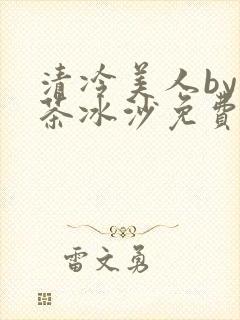 清冷美人by
茶冰沙免费
雷文勇